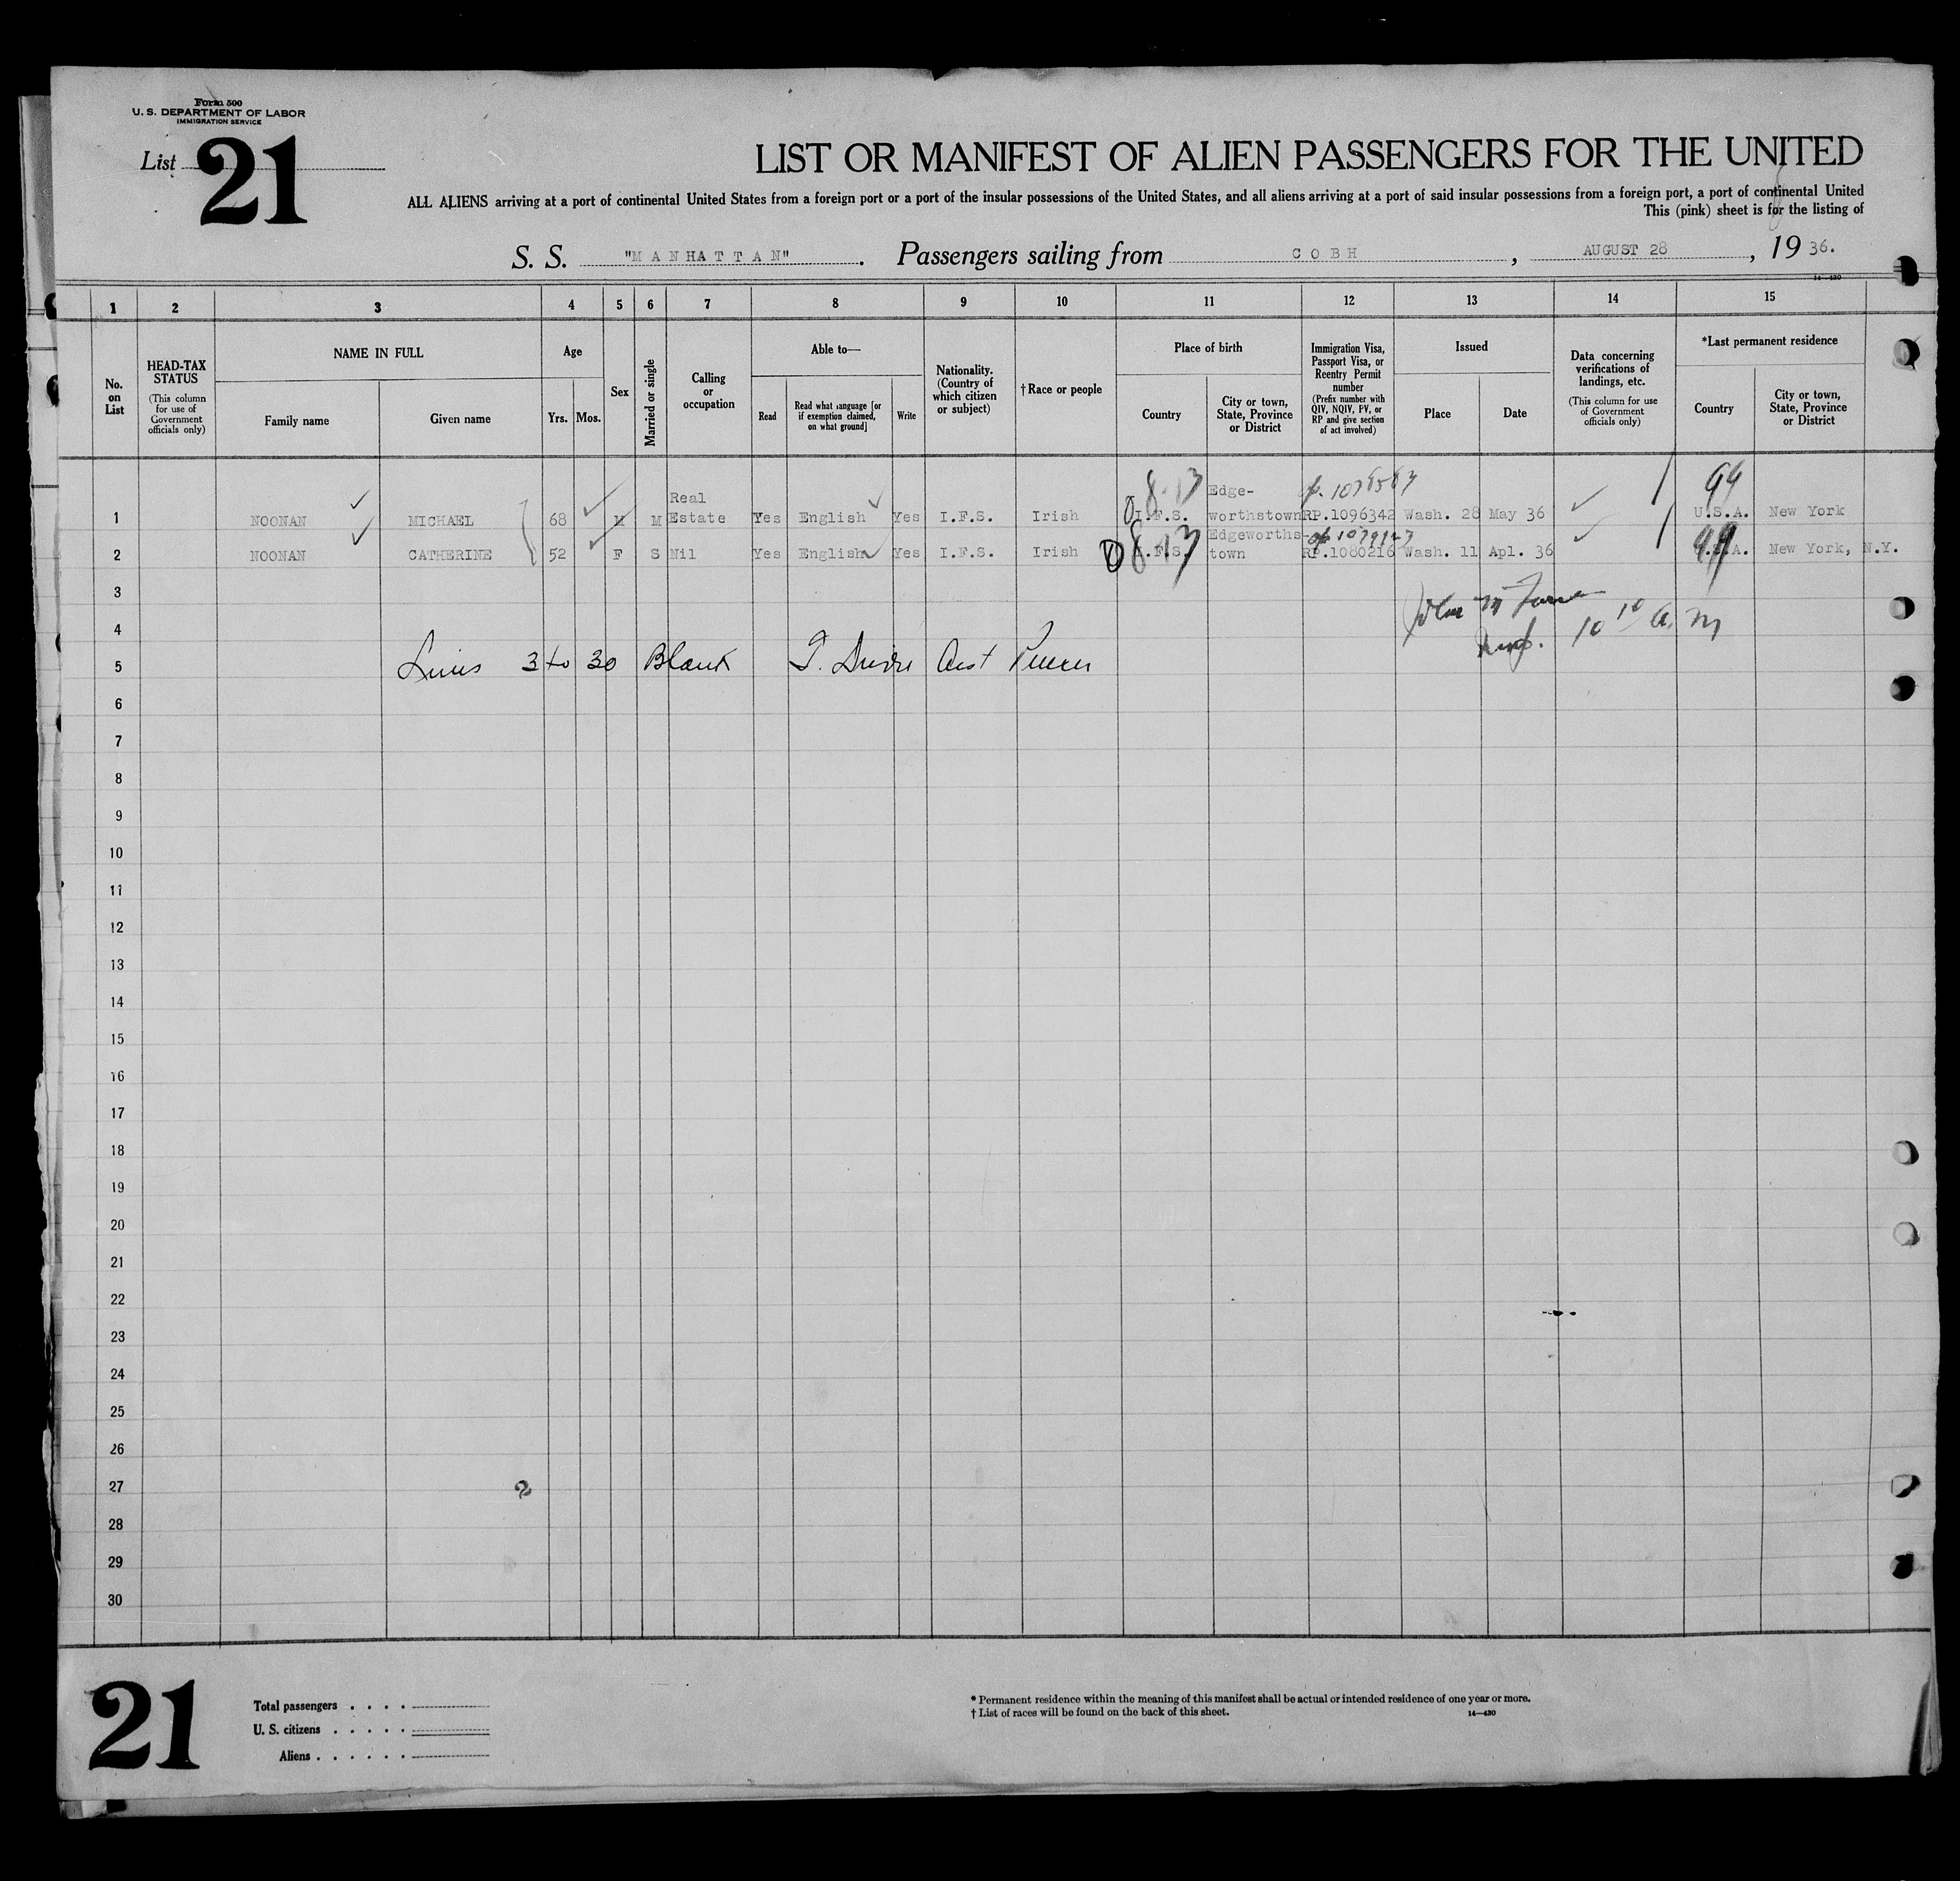 Form 500
U. S. DEPARTMENT OF LABOR
IMMIGRATION SERVICE
List 21
LIST OR MANIFEST OF ALIEN PASSENGERS FOR THE UNITED
ALL ALIENS arriving at a port of continental United States from a foreign port or a port of the insular possessions of the United States, and all aliens arriving at a port of said insular possessions from a foreign port, a port of continental United
This (pink) sheet is for the listing of
S. S. "MANHATTAN". Passengers sailing from COBH, AUGUST 28, 1936.
14—430
1 2 3 4 5 6 7 8 9 10 11 12 13 14 15
No. on List
HEAD-TAX STATUS (This column for use of Government officials only)
NAME IN FULL
Family name
Given name
Age
Yrs.
Mos.
Sex
Married or single
Calling or occupation
Able to—
Read
Read what language [or if exemption claimed, on what ground]
Write
Nationality. (Country of which citizen or subject)
†Race or people
Place of birth
Country
City or town, State, Province or District
Immigration Visa, Passport Visa, or Reentry Permit number (Prefix number with QIV, NQIV, PV, or RP and give section of act involved)
Issued
Place
Date
Data concerning verifications of landings, etc. (This column for use of Government officials only)
*Last permanent residence
Country
City or town, State, Province or District
1 NOONAN MICHAEL 68 M M Real Estate Yes English Yes I.F.S. Irish I.F.S. Edge-worthstown RP.1096342 Wash. 28 May 36 U.S.A. New York
99
2 NOONAN CATHERINE 52 F S Nil Yes English Yes I.F.S. Irish I.F.S. Edgeworths-town RP.1080216 Wash. 11 Apl. 36 U.S.A. New York, N.Y.
99
3
4
10 10 A. M
5 Lines 3 to 30 Blank
6
7
8
9
10
11
12
13
14
15
16
17
18
19
20
21
22
23
24
25
26
27
28
29
30
21
Total passengers . . . .
U. S. citizens . . . . .
Aliens . . . . . .
* Permanent residence within the meaning of this manifest shall be actual or intended residence of one year or more.
† List of races will be found on the back of this sheet.
14—430